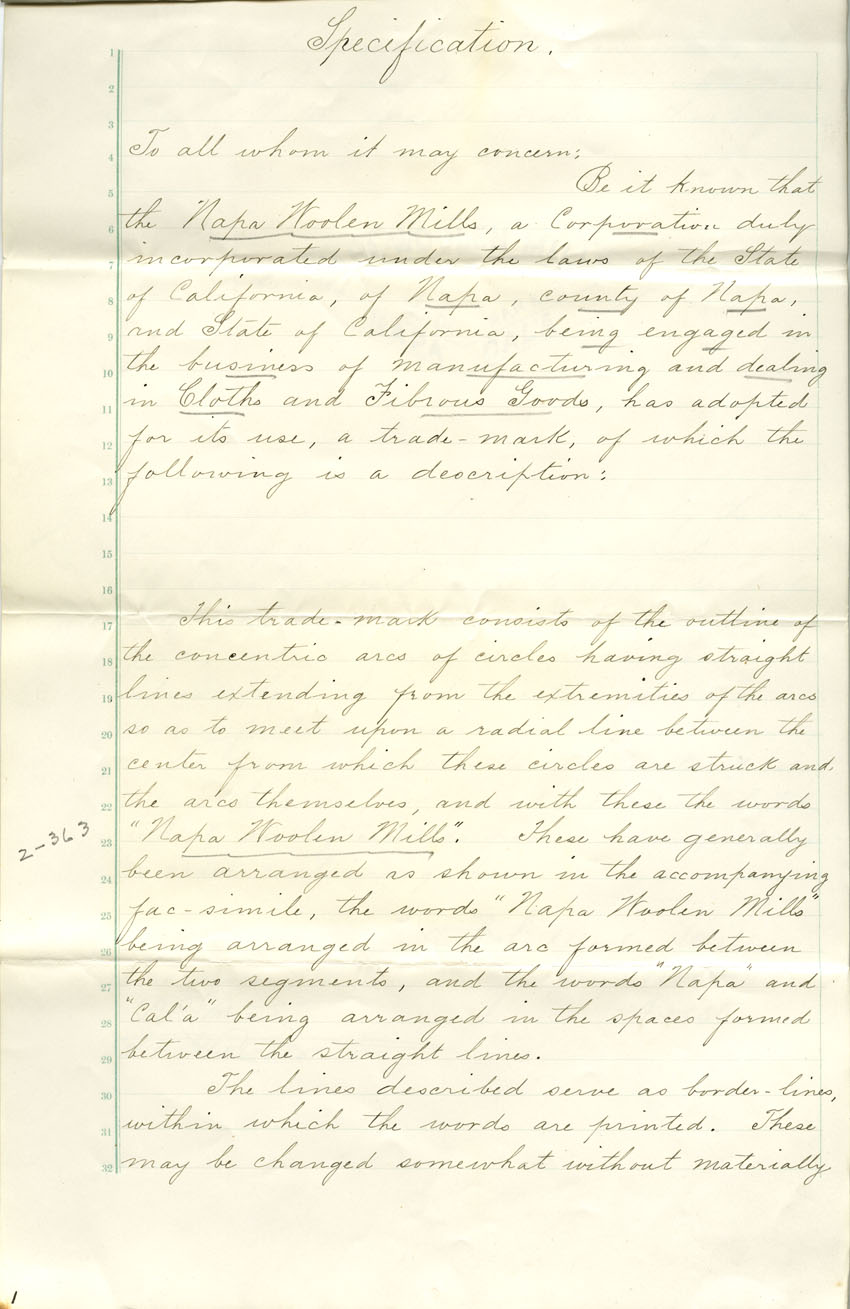 Specification.
1
2
3
To all whom it may concern:
4
Be it known that
5
the Napa Woolen Mills, a Corporation duly
6
incorporated under the laws of the State
7
of California, of Napa, county of Napa,
8
and State of California, being engaged in
9
the business of manufacturing and dealing
10
in Cloths and Fibrous Goods, has adopted
11
for its use, a trade-mark, of which the
12
following is a description:
13
14
15
16
This trade-mark consists of the outline of
17
the concentric arcs of circles having straight
18
lines extending from the extremities of the arcs
19
so as to meet upon a radial line between the
20
center from which these circles are struck and
21
the arcs themselves, and with these the words
22
"Napa Woolen Mills". These have generally
23
2-363
been arranged as shown in the accompanying
24
fac-simile, the words "Napa Woolen Mills"
25
being arranged in the arc formed between
26
the two segments, and the words "Napa" and
27
"Cal'a" being arranged in the spaces formed
28
between the straight lines.
29
The lines described serve as border-lines,
30
within which the words are printed. These
31
may be changed somewhat without materially
32
1